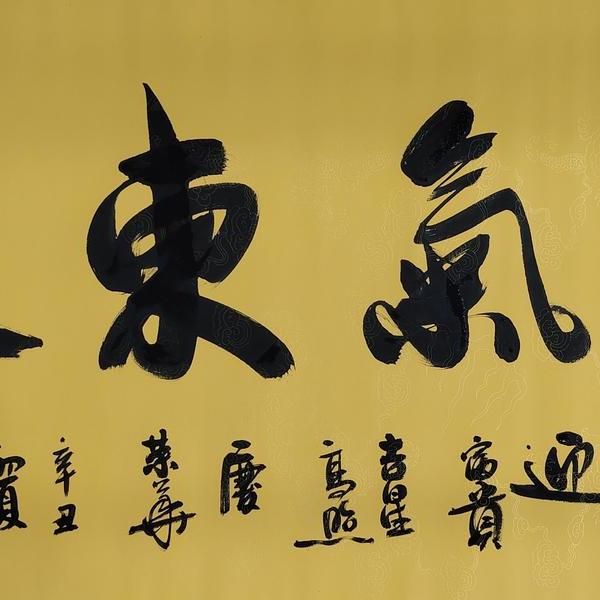 氣東
迎
富貴
吉星
高照
慶
榮華
辛丑
賀